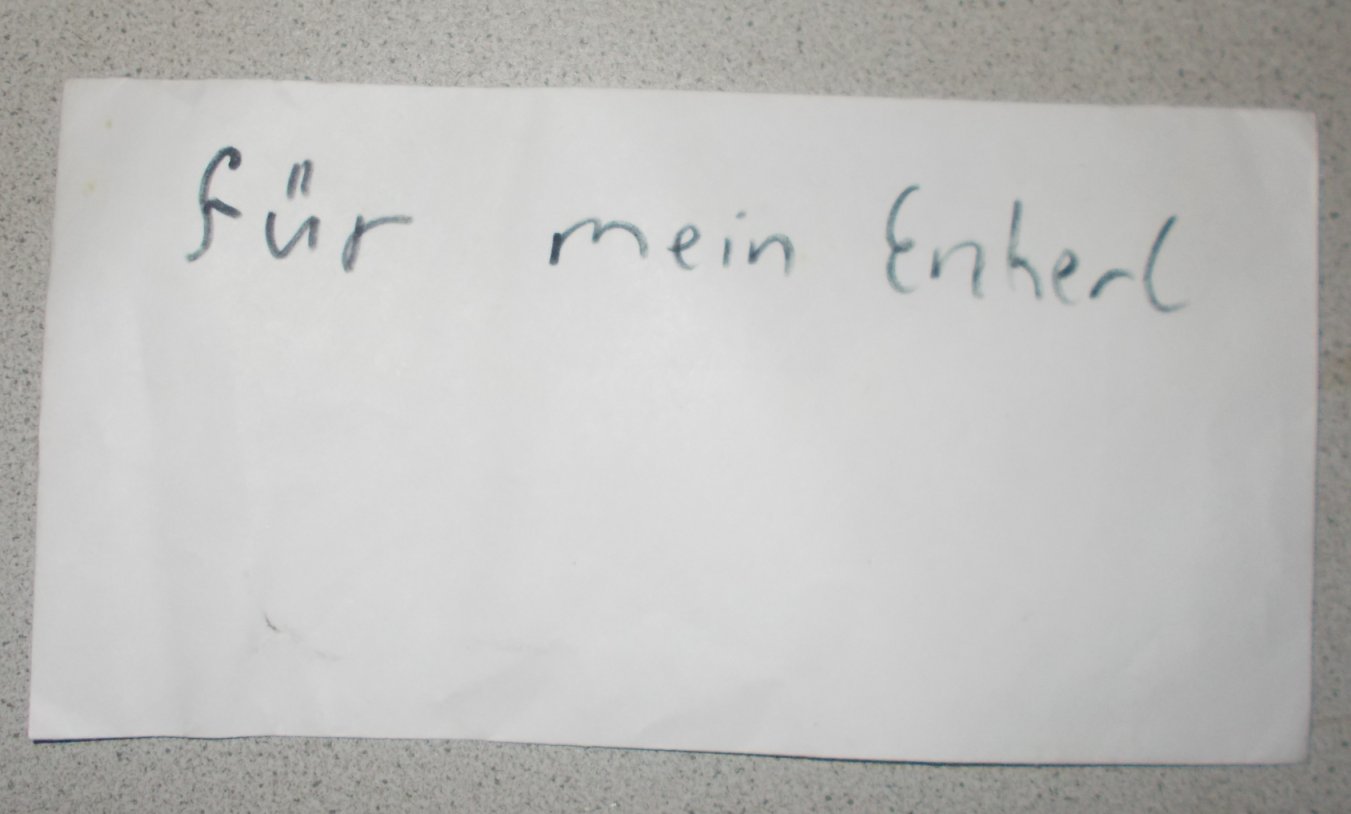 für mein Enkerl